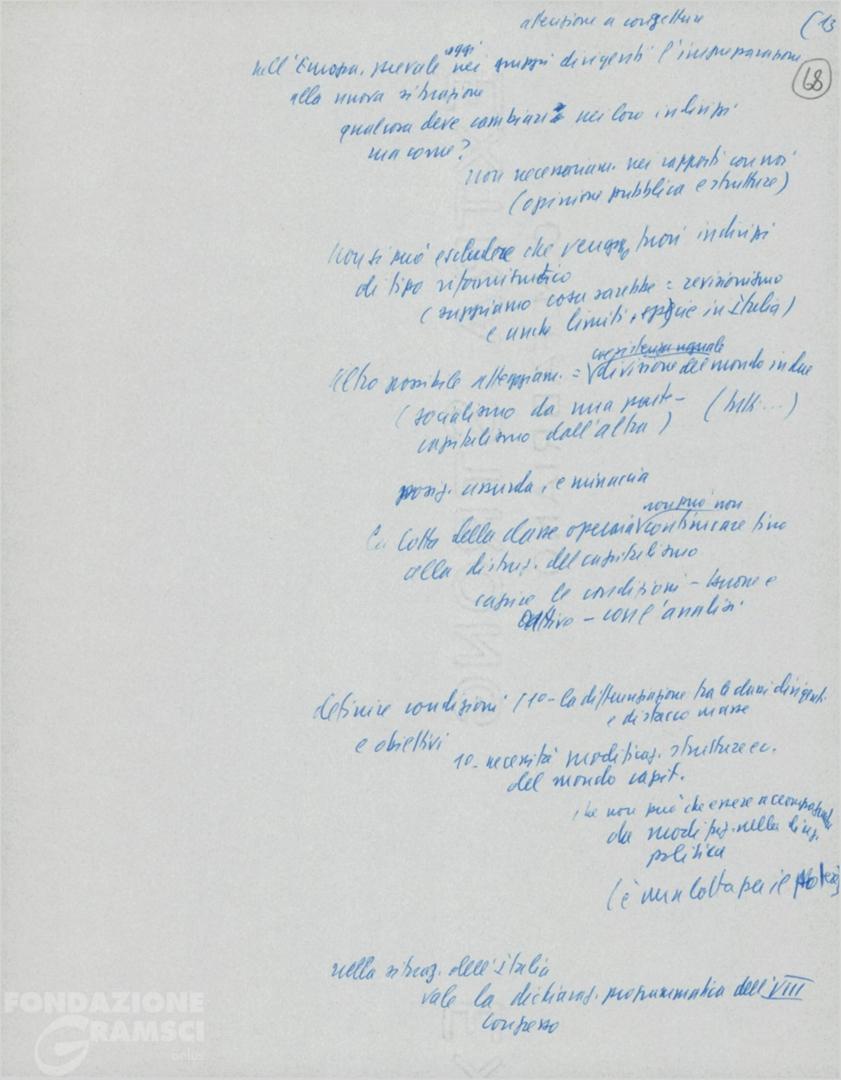 attenzione a congetture
(13
68
nell'Europa, prevale oggi nei gruppi dirigenti l'impreparazione
alla nuova situazione
qualcosa deve cambiare nei loro indirizzi
ma come?
non necessariam. nei rapporti con noi
(opinione pubblica e strutture)
Non si può escludere che vengano fuori indirizzi
di tipo riformistico
(sappiamo cosa sarebbe = revisionismo
e anche limiti, specie in Italia)
Altro possibile atteggiam. = divisione del mondo in due
(socialismo da una parte -
capitalismo dall'altra)
posiz. assurda, e minaccia
la lotta della classe operaia non può non continuare fino
alla distruz. del capitalismo
capire le condizioni - buone e
cattive - con l'analisi
definire condizioni (1º - la differenziazione tra le classi dirigenti
e obiettivi
e distacco masse
1º - necessità modificaz. strutture ec.
del mondo capit.
che non può che essere accompagnata
da modifiz. nella direz.
politica
(è una lotta per il potere)
nella situaz. dell'Italia
vale la dichiaraz. programmatica dell'VIII
congresso
FONDAZIONE
GRAMSCI
onlus